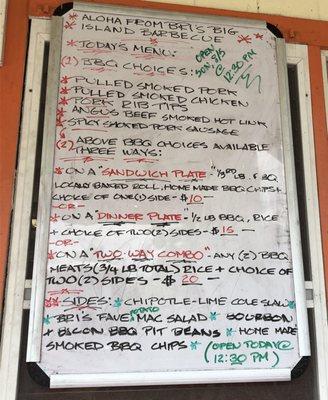 * ALOHA FROM BRI'S BIG
ISLAND BARBECUE *
* TODAY'S MENU: *
OPEN
SUN 5/5
@
12:30 PM
(1) BBQ CHOICES:
* PULLED SMOKED PORK
* PULLED SMOKED CHICKEN
* PORK RIB-TIPS
* ANGUS BEEF SMOKED HOT LINK
* SPICY SMOKED PORK SAUSAGE
(2) ABOVE BBQ CHOICES AVAILABLE
THREE WAYS:
* ON A "SANDWICH PLATE" - 1/3RD LB. BBQ,
LOCALLY BAKED ROLL, HOME MADE BBQ CHIPS +
CHOICE OF ONE(1) SIDE - $10 -
- OR -
* ON A "DINNER PLATE" - 1/2 LB BBQ, RICE
+ CHOICE OF TWO(2) SIDES - $15 -
- OR -
* ON A "TWO-WAY COMBO" - ANY (2) BBQ
MEATS (3/4 LB TOTAL) RICE + CHOICE OF
TWO (2) SIDES - $20 -
* SIDES: * CHIPOTLE-LIME COLE SLAW *
* BRI'S FAVE POTATO MAC SALAD * BOURBON
+ BACON BBQ PIT BEANS * HOME MADE
SMOKED BBQ CHIPS * (OPEN TODAY @
12:30 PM)